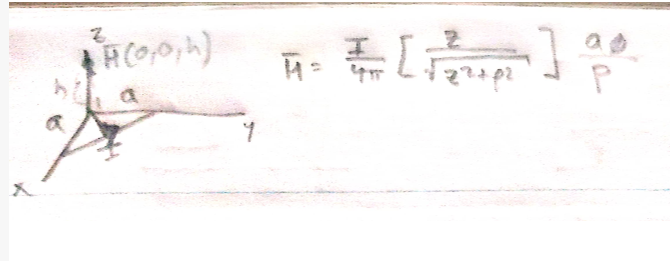 z
H̄(0,0,h)
h
a
a
I
y
x
H̄ = I/4π [ z/√z²+ρ² ] aφ/ρ